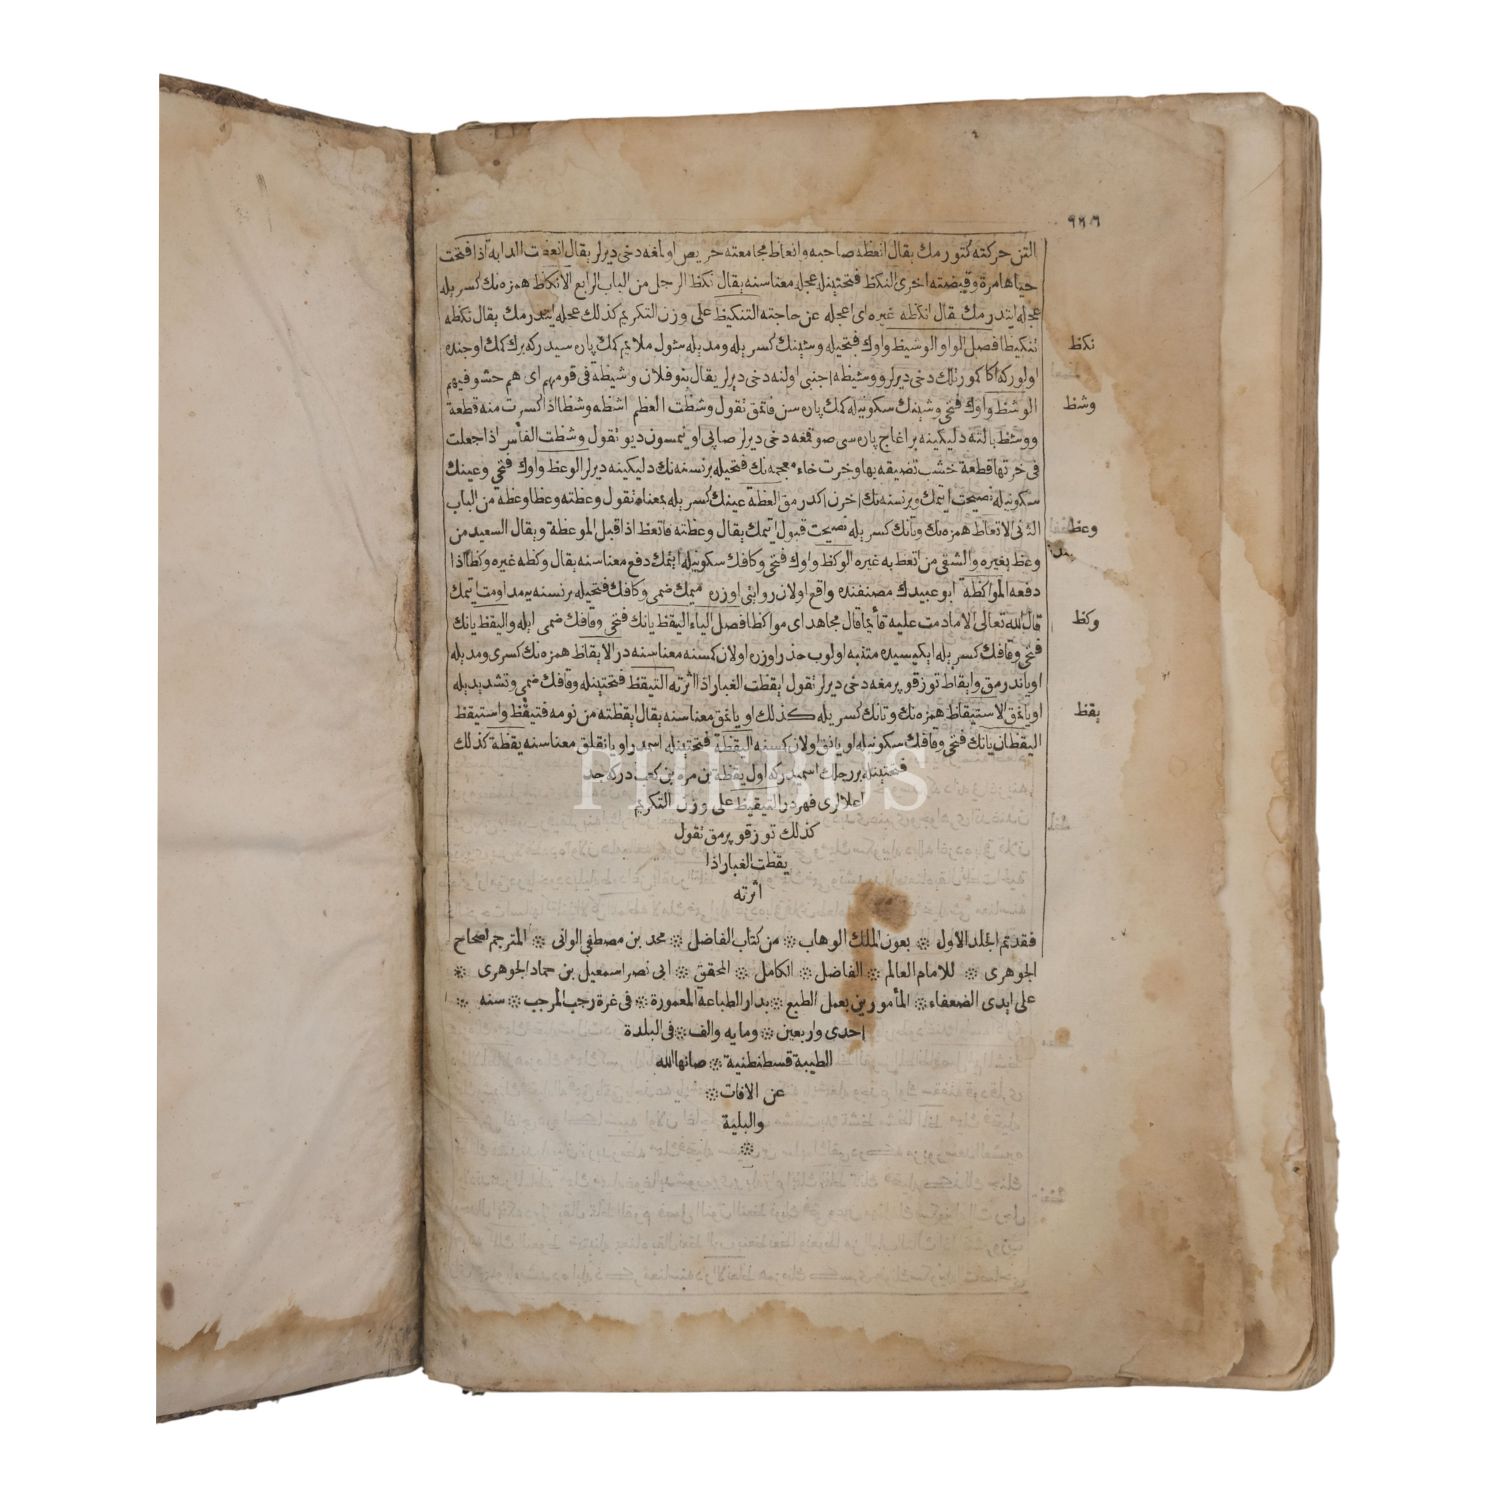 ٩٦٦
التن حركته كتورمك يقال انعظه صاحبه وانعاظ مجامعته حريص اولمغه دخى ديرلر يقال انعظت الدابه اذا فتحت
حياها مرة وقبضته اخرى النكظ فتحتينله عجله معناسنه يقال نكظ الرجل من الباب الرابع الانكاظ همزه نك كسريله
عجله ايتدرمك يقال انكظه غيره اى اعجله عن حاجته التنكيظ على وزن التكريم كذلك عجله ايتدرمك يقال نكظه
نكظ
تنكيظا فصل الواو الوشيظ واوك فتحيله وشينك كسريله ومديله شول ملايم كمك پاره سيدركه برك كمك اوجنده
اولوركه اكا كمورتلك دخى ديرلر ووشيظه اجنبى اولنه دخى ديرلر يقال بنو فلان وشيظة فى قومهم اى هم حشو فيهم
وشظ
الوشظ واوك فتحى وشينك سكونيله كمك پاره سن قاتمق تقول وشظت العظم اشظه وشظا اذا كسرت منه قطعة
ووشظ بالته دليكينه بر اغاج پاره سى صوقمغه دخى ديرلر صاپى اوينمسون ديو تقول وشظت الفأس اذا جعلت
فى خرتها قطعة خشب تضيقه بها وخرت خاء معجمه نك فتحيله بر نسنه نك دليكينه ديرلر الوعظ واوك فتحى وعينك
سكونيله نصيحت ايتمك وبر نسنه نك اخرن اكدرمق العظة عينك كسريله بمعناه تقول وعظته وعظا وعظه من الباب
وعظ
الثانى الاتعاظ همزه نك وتانك كسريله نصيحت قبول ايتمك يقال وعظته فاتعظ اذا قبل الموعظة ويقال السعيد من
وعظ بغيره والشقى من اتعظ به غيره الوكظ واوك فتحى وكافك سكونيله ايتمك دفع معناسنه يقال وكظه غيره وكظا اذا
دفعه المواكظة ابو عبيدك مصنفنده واقع اولان روايتى اوزره ميمك ضمى وكافك فتحيله بر نسنه يه مداومت ايتمك
وكظ
قال الله تعالى الا مادمت عليه قائما قال مجاهد اى مواكظا فصل الياء اليقظ يانك فتحى وقافك ضمى ايله واليقظ يانك
فتحى وقافك كسريله ايكيسيده متنبه اولوب حذر اوزره اولان كمسنه معناسنه در الايقاظ همزه نك كسرى ومديله
اوياندرمق وايقاظ توز قوپرمغه دخى ديرلر تقول ايقظت الغبار اذا اثرته التيقظ فتحتينله وقافك ضمى وتشديديله
يقظ
اويانمق الاستيقاظ همزه نك وتانك كسريله كذلك اويانمق معناسنه يقال ايقظته من نومه فتيقظ واستيقظ
اليقظان يانك فتحى وقافك سكونيله اويانق اولان كمسنه اليقظة فتحتينله اسمدر اويانقلق معناسنه يقظة كذلك
فتحتينله بر رجلك اسميدركه اول يقظة بن مره بن كعب دركه جد
اعلارى فهردر التيقيظ على وزن التكريم
كذلك توز قوپرمق تقول
يقظت الغبار اذا
اثرته
فقد تم الجلد الاول ۞ بعون الملك الوهاب ۞ من كتاب الفاضل ۞ محمد بن مصطفى الوانى ۞ المترجم لصحاح
الجوهرى ۞ للامام العالم ۞ الفاضل ۞ الكامل ۞ المحقق ۞ ابى نصر اسمعيل بن حماد الجوهرى ۞
على ايدى الضعفاء ۞ المأمورين بعمل الطبع ۞ بدار الطباعة المعمورة ۞ فى غرة رجب المرجب ۞ سنه ۞
احدى واربعين ۞ ومايه والف ۞ فى البلدة
الطيبة قسطنطنية ۞ صانها الله
عن الافات ۞
والبلية
۞
PHEBUS